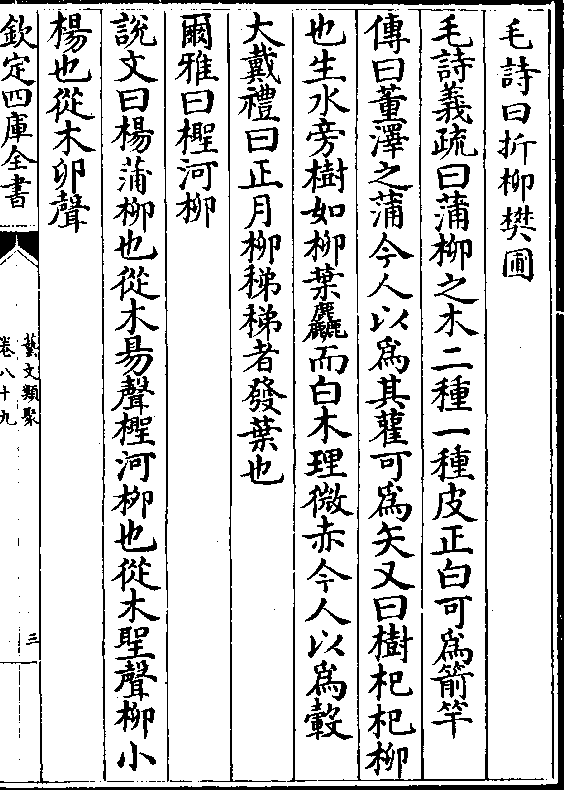 毛詩曰折柳樊圃
毛詩義疏曰蒲柳之木二種一種皮正白可爲箭竿
傳曰董澤之蒲今人以爲其藋可爲矢又曰樹杞杞柳
也生水旁樹如柳葉麤而白木理微赤今人以爲轂
大戴禮曰正月柳稊稊者發葉也
爾雅曰檉河柳
說文曰楊蒲柳也從木昜聲檉河柳也從木聖聲柳小
楊也從木卯聲
欽定四庫全書
藝文類聚
卷八十九
三